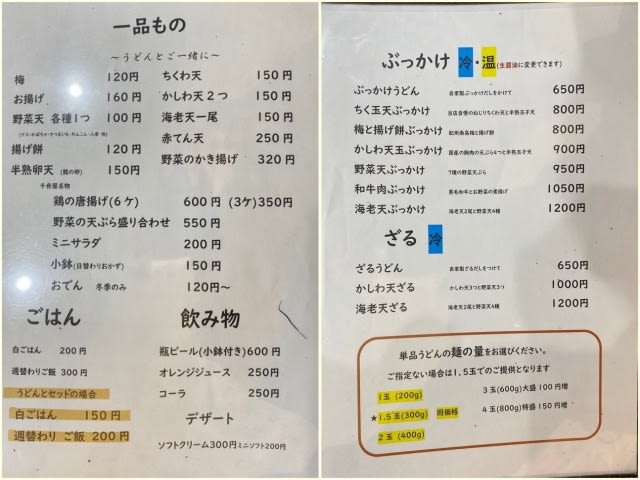 一品もの
～うどんとご一緒に～
梅 120円
お揚げ 160円
野菜天 各種1つ 100円
揚げ餅 120円
半熟卵天 150円
ちくわ天 150円
かしわ天2つ 150円
海老天一尾 150円
赤てん天 250円
野菜のかき揚げ 320円
鶏の唐揚げ(6ケ) 600円 (3ケ)350円
野菜の天ぷら盛り合わせ 550円
ミニサラダ 200円
小鉢(日替わりおかず) 150円
おでん 冬季のみ 120円～
ごはん
白ごはん 200円
週替わりご飯 300円
うどんとセットの場合
白ごはん 150円
週替わり ご飯 200円
飲み物
瓶ビール(小鉢付き)600円
オレンジジュース 250円
コーラ 250円
デザート
ソフトクリーム300円 ミニソフト200円
ぶっかけ 冷・温 (生醤油に変更できます)
ぶっかけうどん 自家製ぶっかけだしをかけて 650円
ちく玉天ぶっかけ 当店自慢のねじりちくわ天と半熟玉子天 800円
梅と揚げ餅ぶっかけ 紀州南高梅と揚げ餅 800円
かしわ天玉ぶっかけ 国産の胸肉の天ぷら4つと半熟玉子天 900円
野菜天ぶっかけ 7種の野菜天ぷら 950円
和牛肉ぶっかけ 黒毛和牛とお野菜の煮揚げ 1050円
海老天ぶっかけ 海老天2尾と野菜天4種 1200円
ざる 冷
ざるうどん 自家製ざるだしをつけて 650円
かしわ天ざる かしわ天3つと野菜天3つ 1000円
海老天ざる 海老天2尾と野菜天4種 1200円
単品うどんの麺の量をお選びください。
ご指定ない場合は1.5玉でのご提供となります
1玉 (200g)
★1.5玉(300g) 同価格
2玉 (400g)
3玉(600g)大盛 100円増
4玉(800g)特盛 150円増